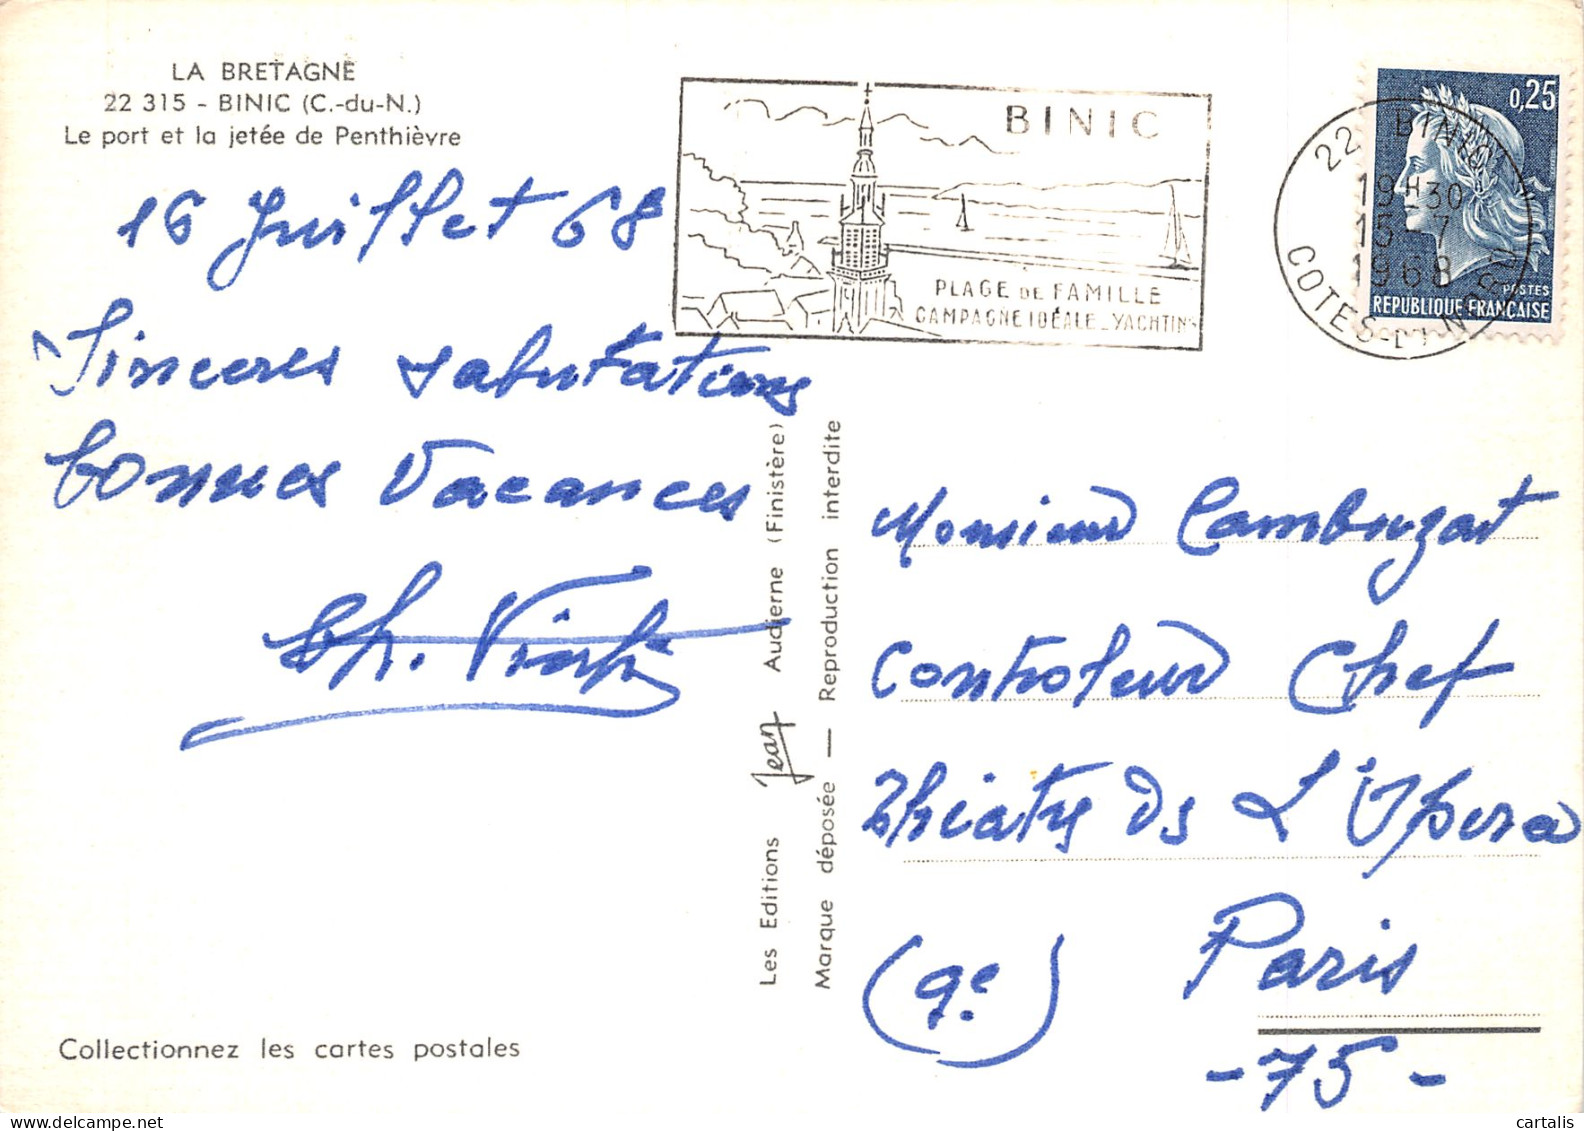 LA BRETAGNE
22 315 - BINIC (C.-du-N.)
Le port et la jetée de Penthièvre
16 Juillet 68
Sinceres salutations
bonnes Vacances
Ch.
Collectionnez les cartes postales
BINIC
PLAGE DE FAMILLE
CAMPAGNE IDÉALE_YACHTING
0,25
POSTES
REPUBLIQUE FRANÇAISE
22 BINIC
19H30
15-7
1968
COTES-DU-NORD
Les Editions Jean Audierne (Finistère)
Marque déposée — Reproduction interdite
Monsieur Cambuzat
Controleur Chef
Théatre de L'Opera
(9e) Paris
- 75 -
cartalis